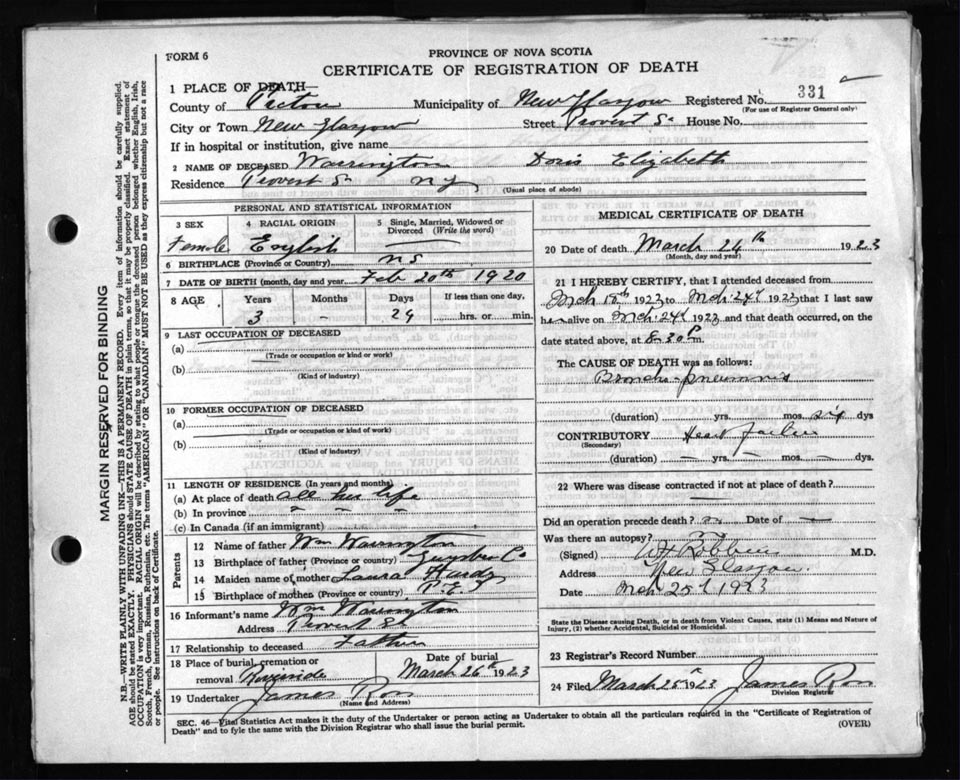 FORM 6
PROVINCE OF NOVA SCOTIA
CERTIFICATE OF REGISTRATION OF DEATH
331
1 PLACE OF DEATH
County of Pictou Municipality of New Glasgow Registered No.
(For use of Registrar General only)
City or Town New Glasgow Street Provost St House No.
If in hospital or institution, give name
2 NAME OF DECEASED Warrington Doris Elizabeth
Residence Provost St N G
(Usual place of abode)
PERSONAL AND STATISTICAL INFORMATION
3 SEX
Female
4 RACIAL ORIGIN
English
5 Single, Married, Widowed or Divorced (Write the word)
6 BIRTHPLACE (Province or Country) N S
7 DATE OF BIRTH (month, day and year) Feb 20th 1920
8 AGE Years Months Days If less than one day,
3 - 29 hrs. or min.
9 LAST OCCUPATION OF DECEASED
(a)
(Trade or occupation or kind or work)
(b)
(Kind of industry)
10 FORMER OCCUPATION OF DECEASED
(a)
(Trade or occupation or kind or work)
(b)
(Kind of industry)
11 LENGTH OF RESIDENCE (In years and months)
(a) At place of death all her life
(b) In province " " "
(c) In Canada (if an immigrant)
Parents
12 Name of father Wm Warrington
13 Birthplace of father (Province or country) Guysboro Co
14 Maiden name of mother Laura Hardy
15 Birthplace of mother (Province or country) P.E.I
16 Informant's name Wm Warrington
Address Provost St
17 Relationship to deceased Father
18 Place of burial, cremation or removal Riverside
Date of burial
March 26th 1923
19 Undertaker James Ross
(Name and Address)
MEDICAL CERTIFICATE OF DEATH
20 Date of death March 24th 1923
(Month, day and year)
21 I HEREBY CERTIFY, that I attended deceased from
Mch 18th 1923 to Mch 24th 1923 that I last saw
her alive on Mch 24th 1923 and that death occurred, on
date stated above, at 8.30 P.m.
The CAUSE OF DEATH was as follows:
Broncho-pneumonia
(duration) yrs. mos. six dys
CONTRIBUTORY Heart failure
(Secondary)
(duration) — yrs. — mos. — dys
22 Where was disease contracted if not at place of death?
Did an operation precede death? no Date of —
Was there an autopsy? no
(Signed) Robbins M.D.
Address New Glasgow
Date Mch 25th 1923
State the Disease causing Death, or in death from Violent Causes, state (1) Means and Nature of
Injury, (2) whether Accidental, Suicidal or Homicidal.
23 Registrar's Record Number
24 Filed March 25th 1923 James Ross
Division Registrar
SEC. 46—Vital Statistics Act makes it the duty of the Undertaker or person acting as Undertaker to obtain all the particulars required in the "Certificate of Registration of
Death" and to fyle the same with the Division Registrar who shall issue the burial permit.
(OVER)
MARGIN RESERVED FOR BINDING
N.B.—WRITE PLAINLY WITH UNFADING INK—THIS IS A PERMANENT RECORD. Every item of information should be carefully supplied.
AGE should be stated EXACTLY. PHYSICIANS should STATE CAUSE OF DEATH in plain terms, so that it may be properly classified. Exact statement of
OCCUPATION is very important. RACIAL ORIGIN will be described by stating to what people or tongue the deceased person belonged whether English, Irish,
Scotch, French, German, Russian, Ruthenian, etc. The terms "AMERICAN" OR "CANADIAN" MUST NOT BE USED as they express citizenship but not a race
or people. See instructions on back of Certificate.